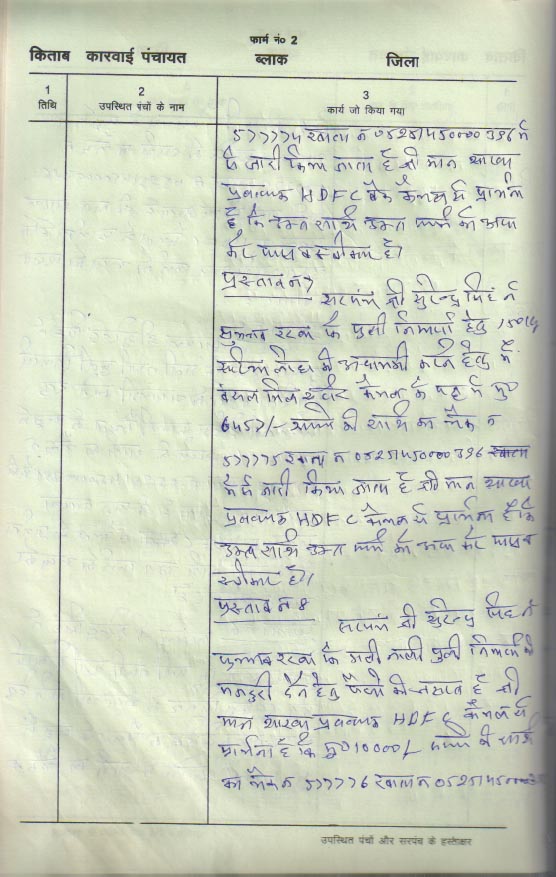 फार्म नं० 2
किताब कारवाई पंचायत ब्लाक जिला
1 2 3
तिथि उपस्थित पंचों के नाम कार्य जो किया गया
577774 खाता न 05251450000396 में
से जारी किया जाता है श्री मान शाखा
प्रबन्धक HDFC बैंक कैमला से प्रार्थना
है कि उक्त राशि उक्त फर्म को अदा
कर पास व स्वीकार है।
प्रस्ताव न 7
सरपंच श्री सुरेन्द्र सिंह ने
सुझाव रखा कि पुली निर्माण हेतु
सरिया लोहा की अदायगी करने हेतु मै
कैमला के पक्ष में मु०
6457/- रूपये की राशि का चैक न
577775 खाता न 05251450000396 खाता
में से जारी किया जाता है श्री मान शाखा
प्रबन्धक HDFC कैमला से प्रार्थना है कि
उक्त राशि उक्त फर्म को अदा कर पास व
स्वीकार है।
प्रस्ताव न 8
सरपंच श्री सुरेन्द्र सिंह ने
सुझाव रखा कि गली नाली पुली निर्माण की
मजदूरी देने हेतु पैसो की जरूरत है श्री
मान शाखा प्रबन्धक HDFC कैमला से
प्रार्थना है कि मु० 10000/- रूपये की राशि
का चैक न 577776 खाता न
उपस्थित पंचों और सरपंच के हस्ताक्षर